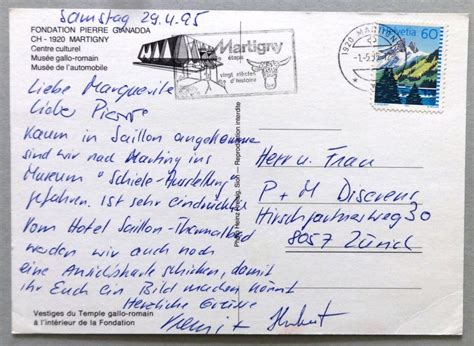 Samstag 29.4.95
FONDATION PIERRE GIANADDA
CH - 1920 MARTIGNY
Centre culturel
Musée gallo-romain
Musée de l'automobile
Martigny
étape
vingt siècles
d'histoire
1920 MARTIGNY
-1.-5.95
Helvetia 60
Liebe Marguerite
Lieber Pierre
Kaum in Saillon angekommen
sind wir nach Martiny ins
Museum "Schiele-Ausstellung"
gefahren. Ist sehr eindrücklich
Vom Hotel Saillon-Thermalbad
werden wir auch noch
eine Ansichtskarte schicken, damit
ihr Euch ein Bild machen könnt
Herzliche Grüsse
+ Hubert
Herr u. Frau
P + M
30
8057 Zürich
Reproduction interdite
Vestiges du Temple gallo-romain
à l'intérieur de la Fondation